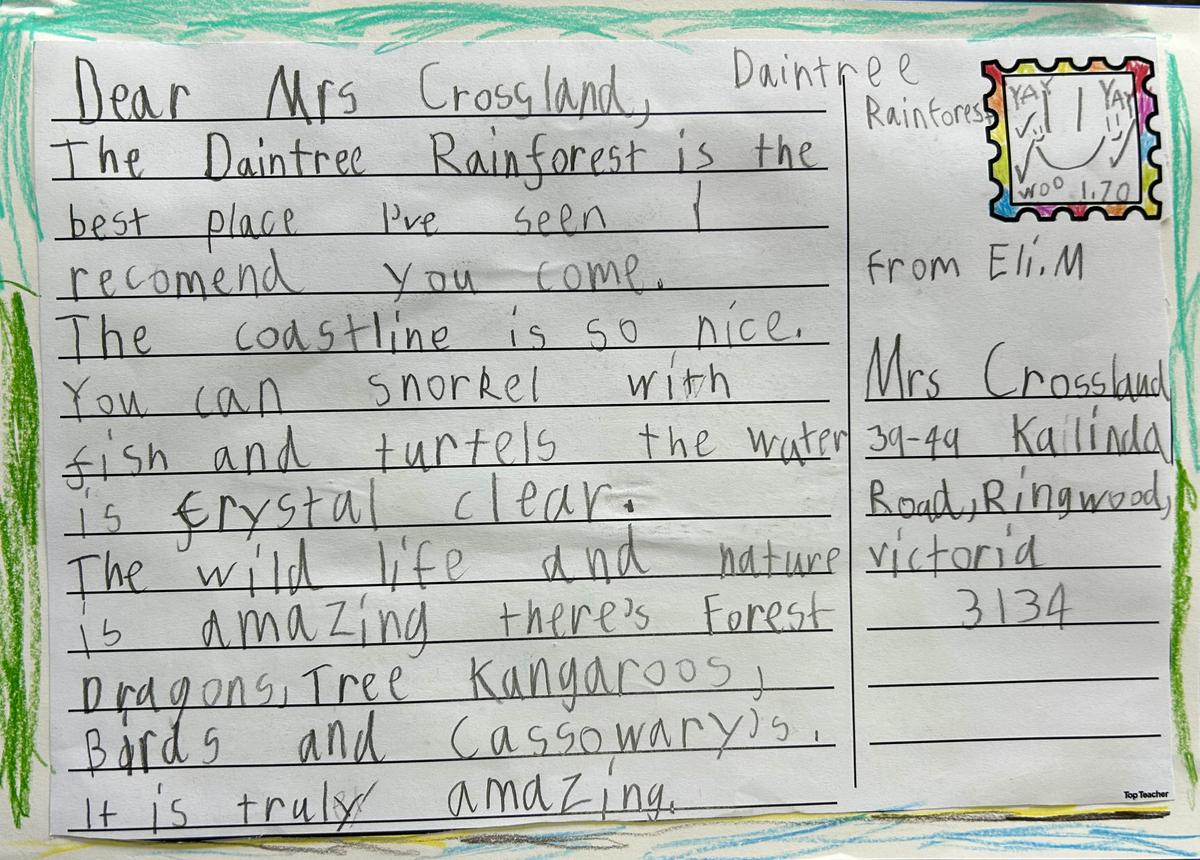 Dear Mrs Crossland,
The Daintree Rainforest is the
best place I've seen I
recomend you come.
The coastline is so nice.
You can snorkel with
fish and turtels the water
is crystal clear.
The wild life and nature
is amazing there's Forest
Dragons, Tree Kangaroos,
Birds and Cassowary's.
It is truly amazing.
Daintree
Rainforest
YAY YAY
woo 1.70
From Eli.M
Mrs Crossland
39-49 Kalinda
Road, Ringwood,
victoria
3134
Top Teacher